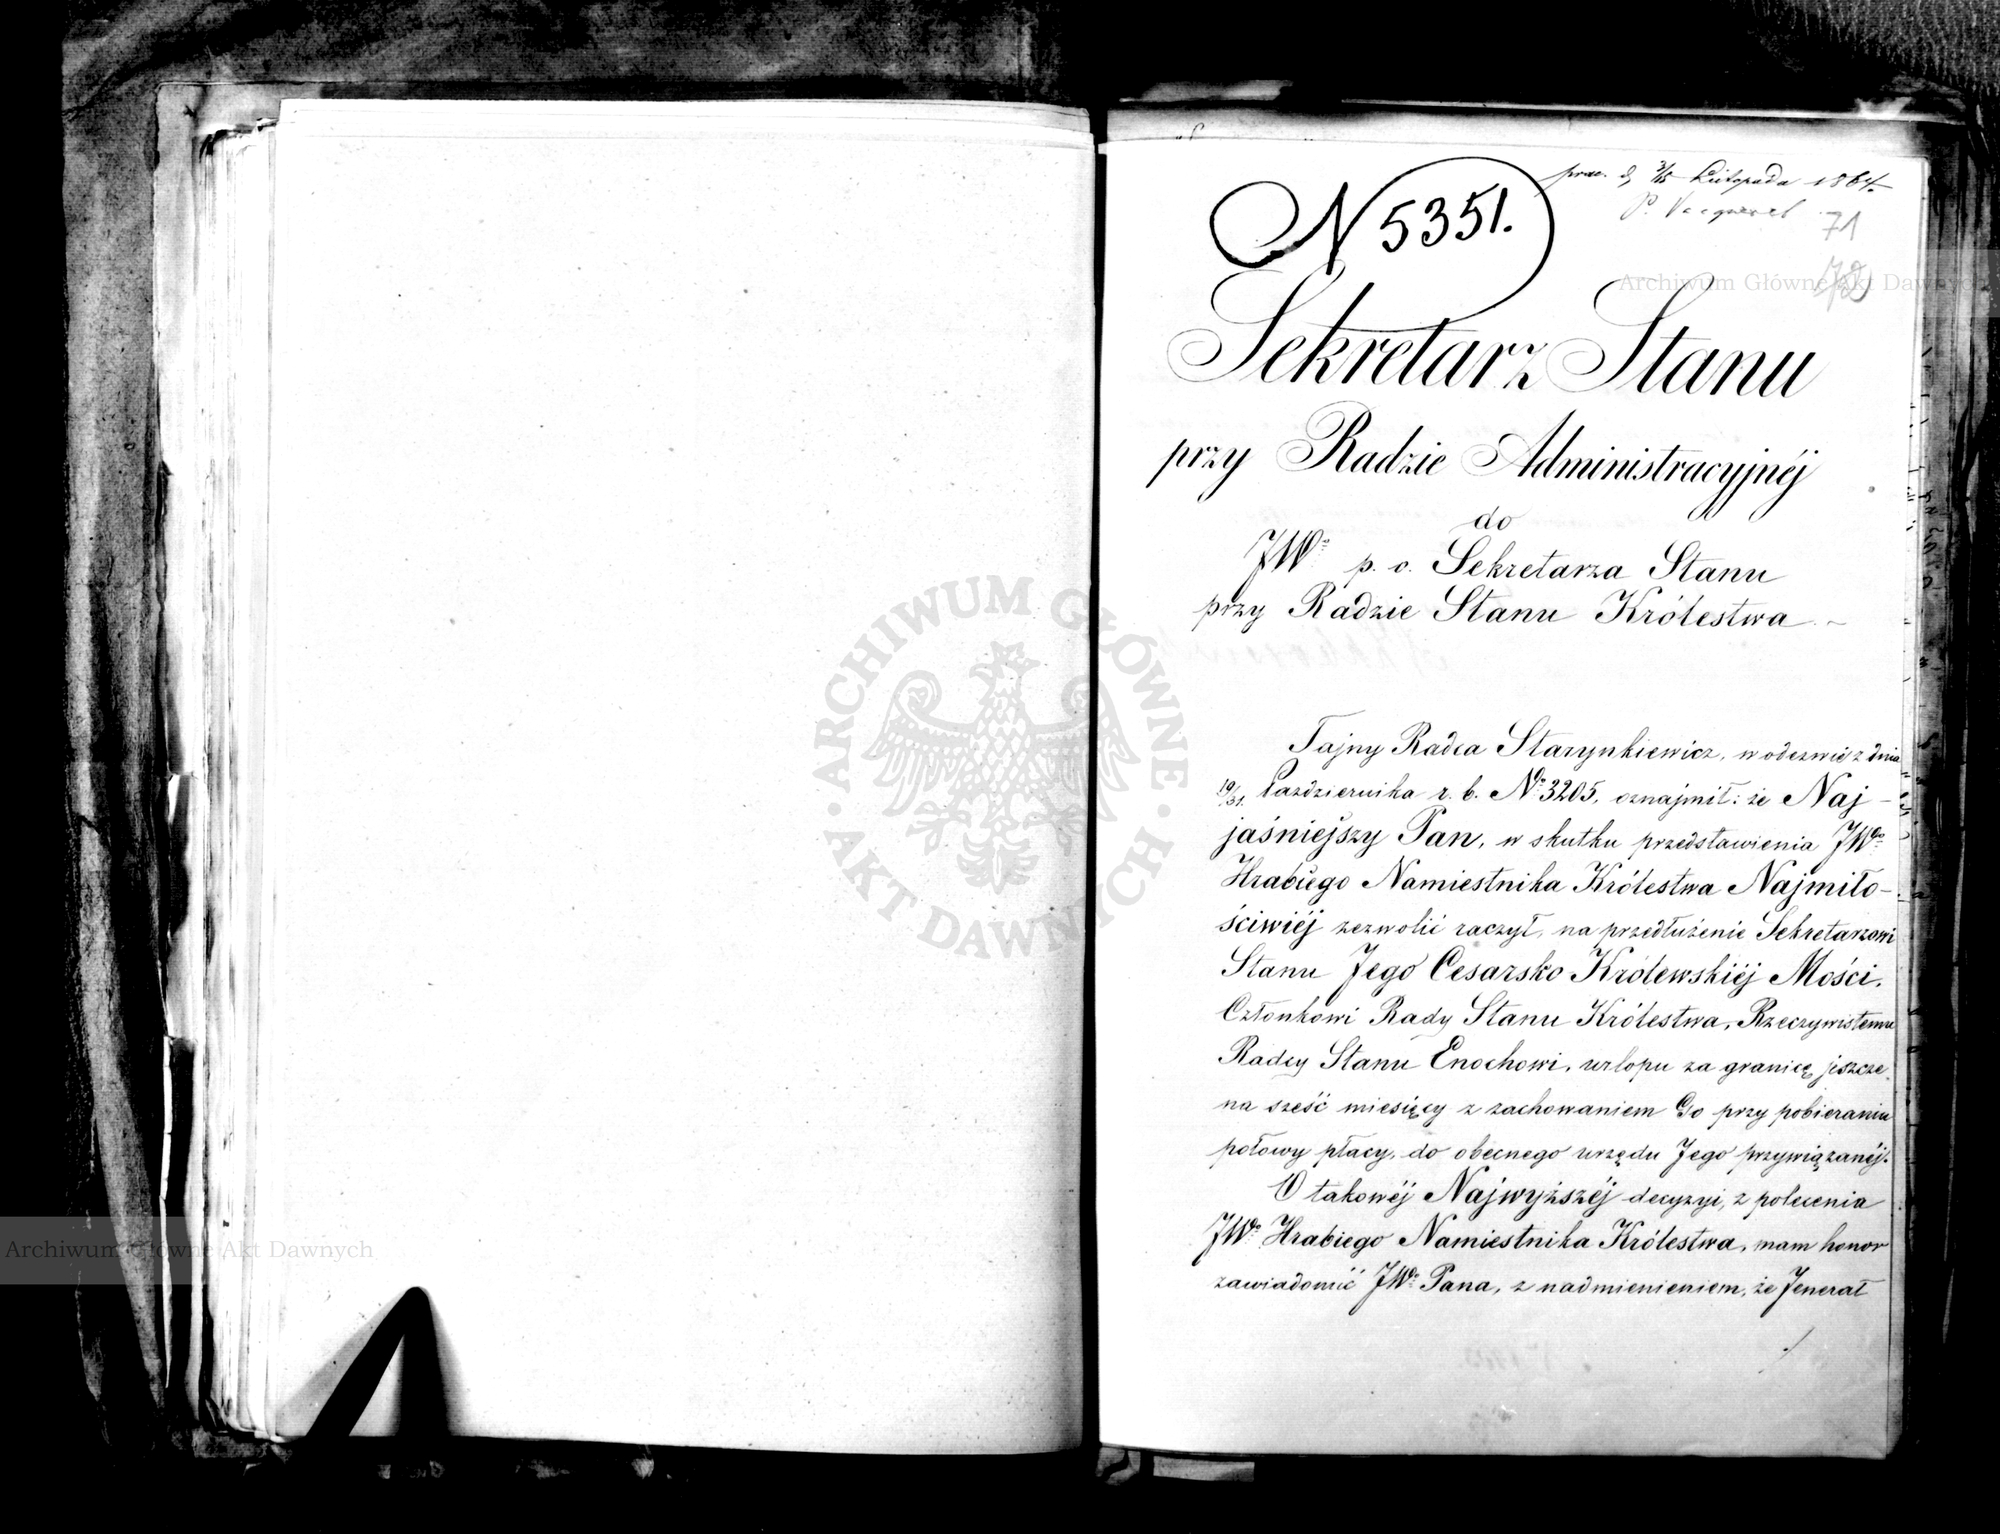 prae. d. 3/15 Listopada 1864.
71
N 5351.
Sekretarz Stanu
przy Radzie Administracyjnéj
do
JWo p. o. Sekretarza Stanu
przy Radzie Stanu Królestwa
Tajny Radca Starynkiewicz, w odezwie z dnia
19/31. Października r. b. No 3205, oznajmił: że Naj-
jaśniejszy Pan, w skutku przedstawienia JWgo
Hrabiego Namiestnika Królestwa Najmiło-
ściwiéj zezwolić raczył, na przedłużenie Sekretarzowi
Stanu Jego Cesarsko Królewskiéj Mości,
Członkowi Rady Stanu Królestwa, Rzeczywistemu
Radcy Stanu Enochowi, urlopu za granicę jeszcze
na sześć miesięcy z zachowaniem Go przy pobieraniu
połowy płacy, do obecnego urzędu Jego przywiązanéj.
O takowéj Najwyższéj decyzyi, z polecenia
JWgo Hrabiego Namiestnika Królestwa, mam honor
zawiadomić JWo Pana, z nadmienieniem, że Jenerał
Archiwum Główne Akt Dawnych
Archiwum Główne Akt Dawnych
ARCHIWUM GŁÓWNE AKT DAWNYCH